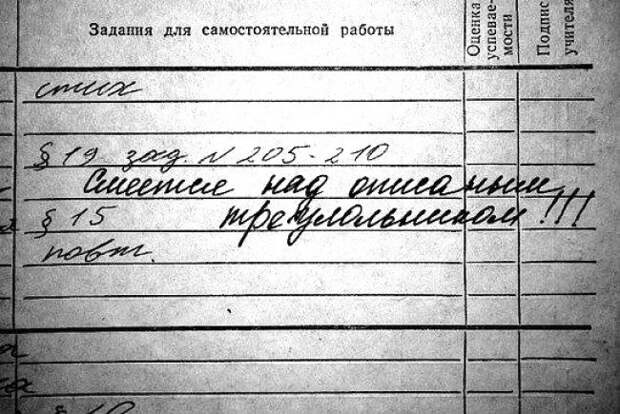 Задания для самостоятельной работы
Оценка успевае-мости
Подпис учителя
стих
§ 19 зад. N 205-210
Смеется над описаным
§ 15 треугольником!!!
повт.